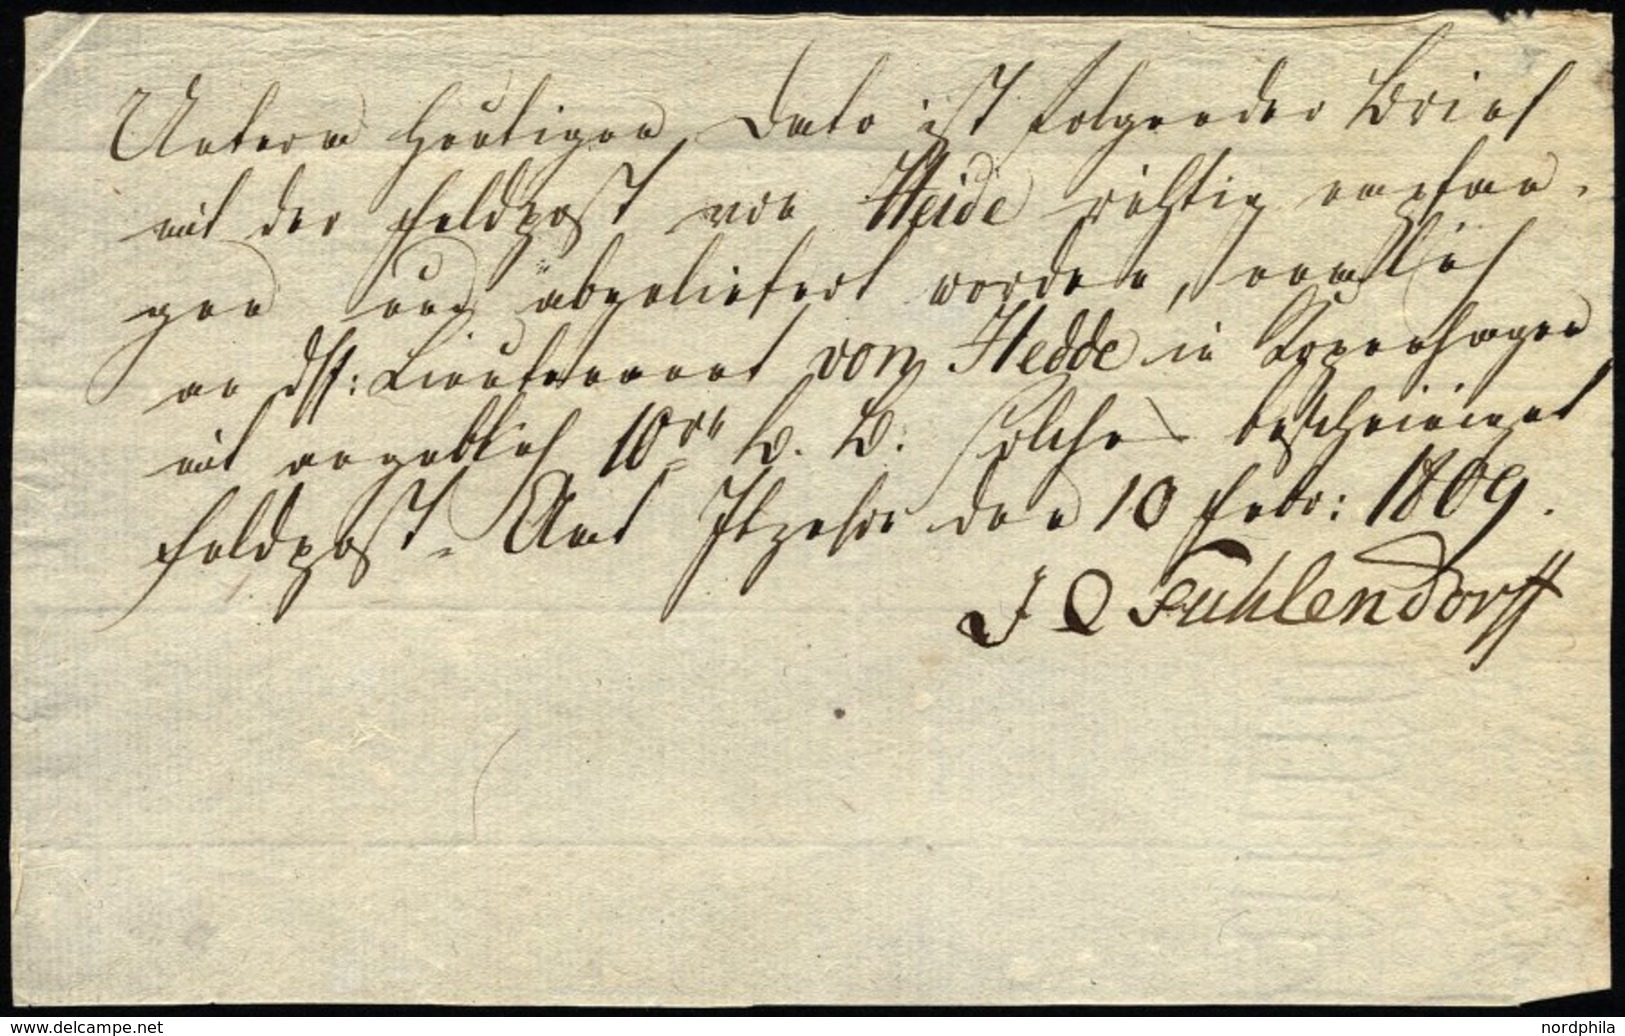 Unterm heutigen Dato ist folgender Brief
mit der Feldpost von Heide richtig empfan-
gen und abgeliefert worden, nemlich
an Lieutenant von Hedde in Kopenhagen
mit angeblich 10 rh b. B. Solches bescheiniget
Feldpost-Amt Itzehoe den 10 Febr: 1809.
J Fuhlendorff
www.delcampe.net
nordphila